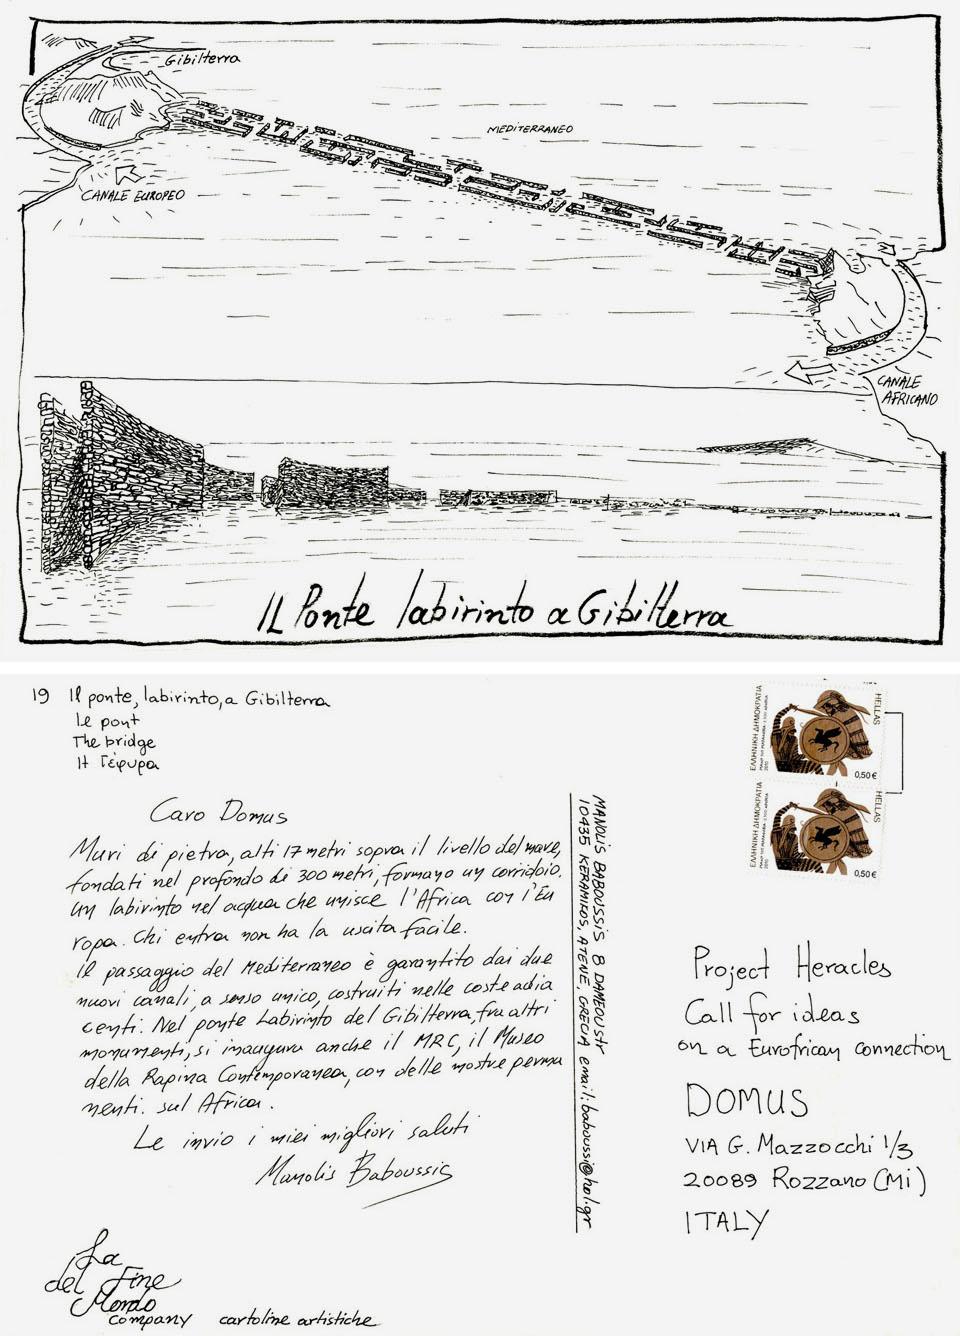 Gibilterra
MEDITERRANEO
CANALE EUROPEO
CANALE
AFRICANO
IL Ponte labirinto a Gibilterra
19 Il ponte, labirinto, a Gibilterra
Le pont
The bridge
Η Γέφυρα
ΕΛΛΗΝΙΚΗ ΔΗΜΟΚΡΑΤΙΑ
HELLAS
0,50 €
ΕΛΛΗΝΙΚΗ ΔΗΜΟΚΡΑΤΙΑ
HELLAS
0,50 €
Caro Domus
Muri di pietra, alti 17 metri sopra il livello del mare,
fondati nel profondo di 300 metri, formano un corridoio.
Un labirinto nel acqua che unisce l'Africa con l'Eu
ropa. Chi entra non ha la uscita facile.
Il passaggio del Mediterraneo è garantito dai due
nuovi canali, a senso unico, costruiti nelle coste adia
centi. Nel ponte Labirinto del Gibilterra, fra altri
monumenti, si inaugura anche il MRC, il Museo
della Rapina Contemporanea, con delle mostre perma
nenti. sul Africa.
Le invio i miei migliori saluti
Manolis Baboussis
MANOLIS BABOUSSIS 8 DAMEOU str
10435 KERAMIKOS, ATENE, GRECIA email: baboussi@hol.gr
Project Heracles
Call for ideas
on a Eurofrican connection
DOMUS
VIA G. Mazzocchi 1/3
20089 Rozzano (Mi)
ITALY
La
del Fine
Mondo
company cartoline artistiche